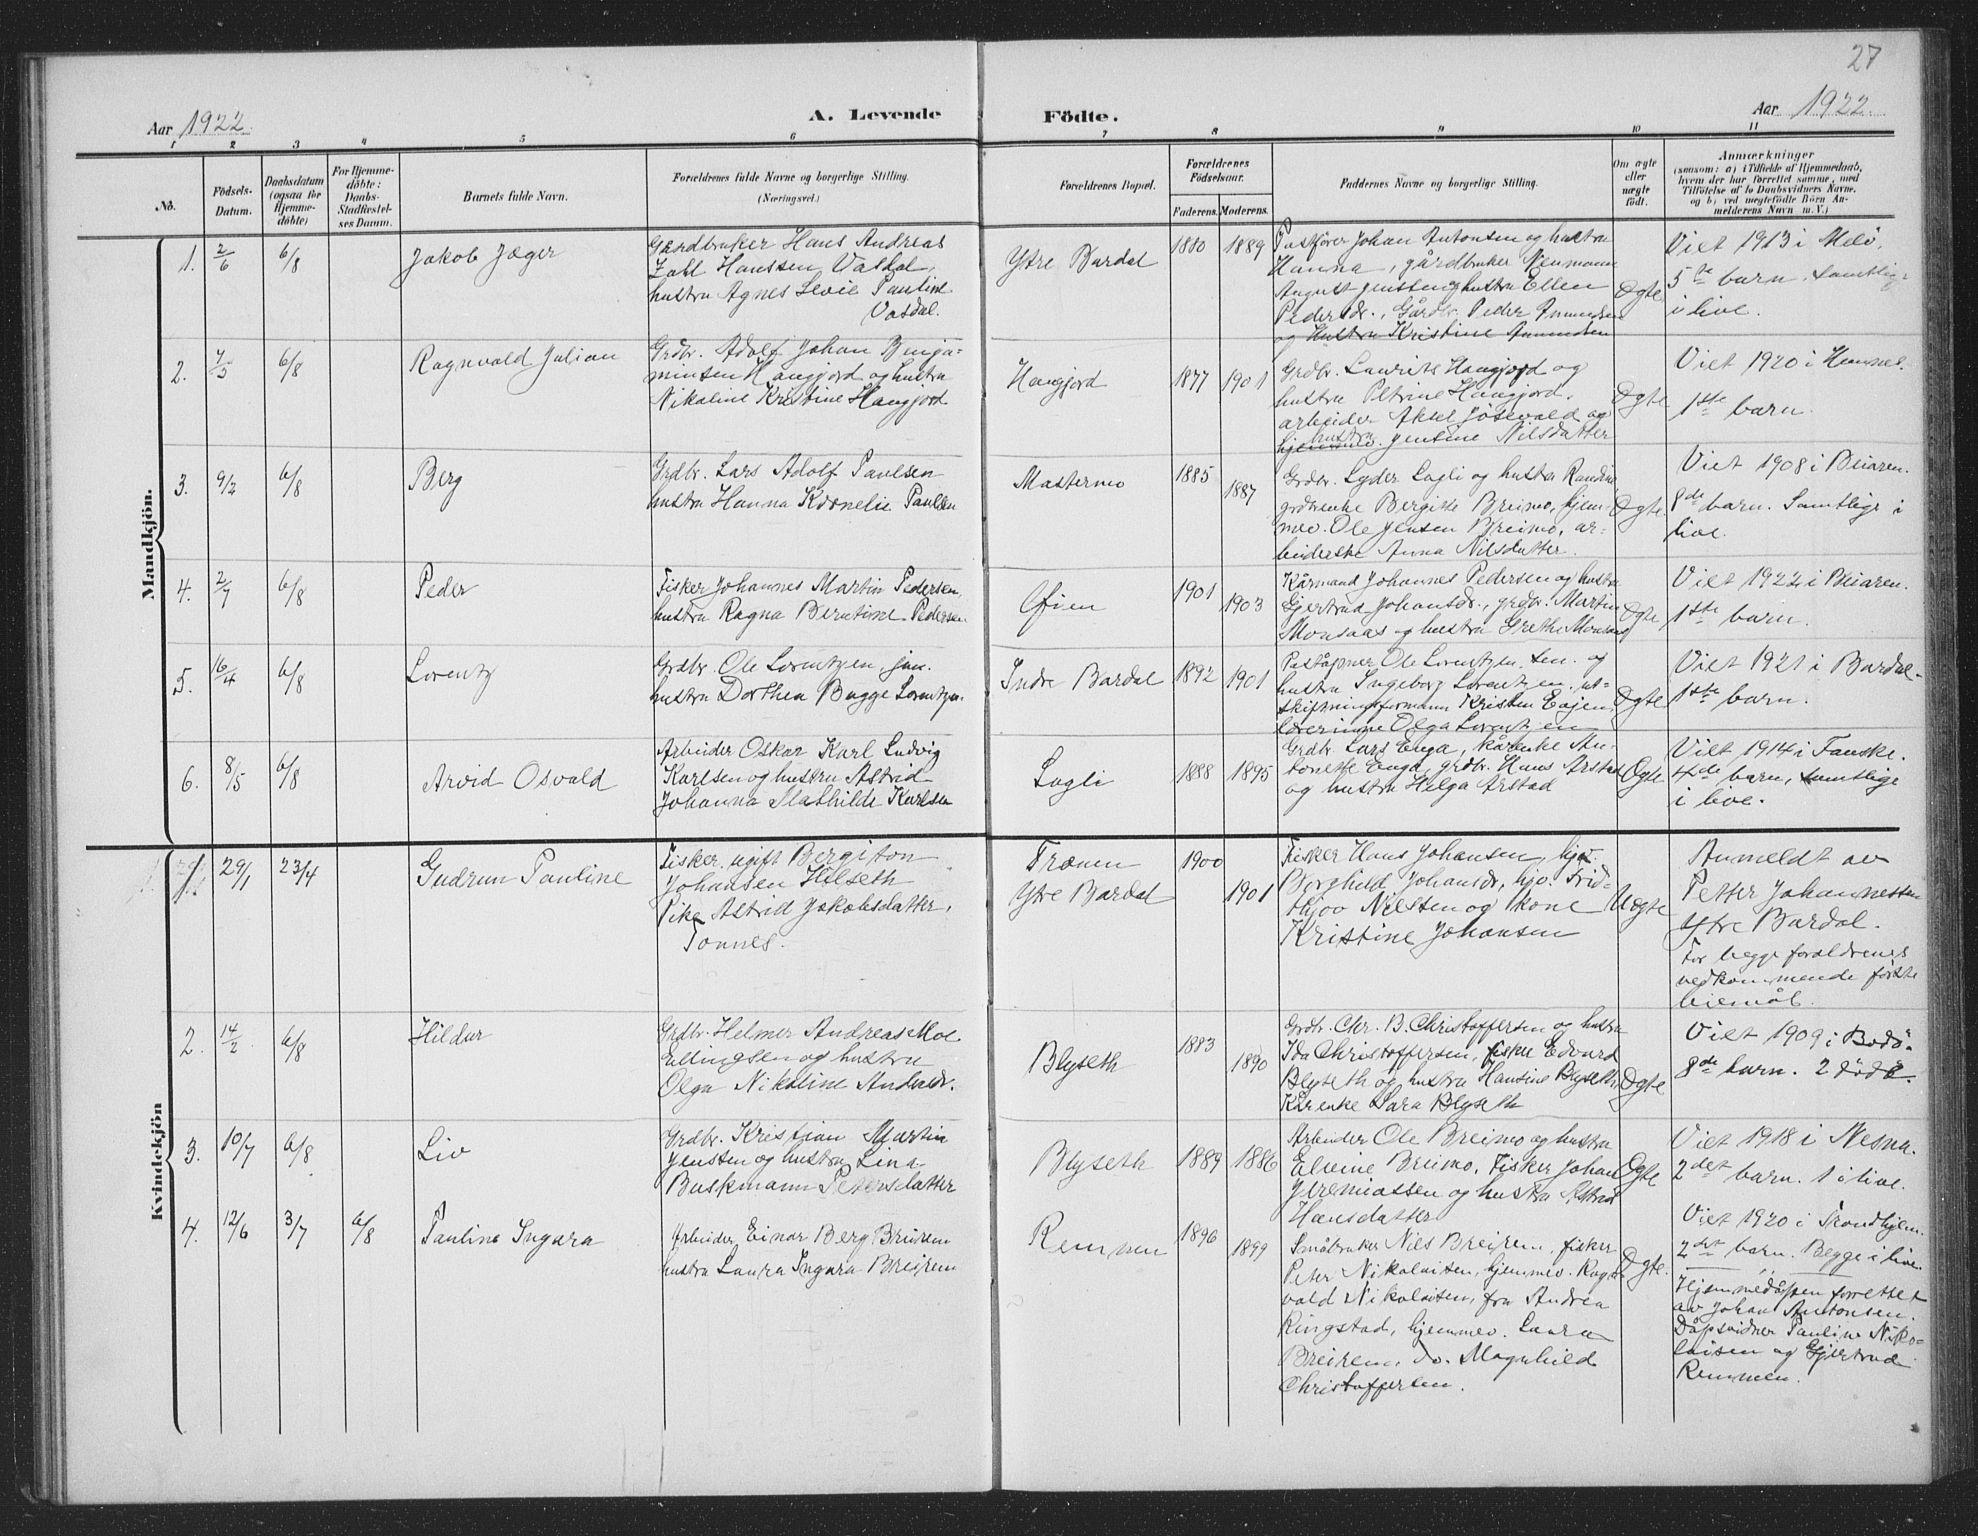 27
Aar 1922.
A. Levende
Födte.
Aar 1922.
1 2 3 4 5 6 7 8 9 10 11
No.
Födsels-
Datum.
Daabsdatum
(ogsaa for
Hjemme-
döbte)
For Hjemme-
döbte:
Daabs-
Stadfæstel-
ses Datum.
Barnets fulde Navn.
Forældrenes fulde Navne og borgerlige Stilling.
(Næringsvei.)
Forældrenes Bopæl.
Forældrenes
Födselsaar.
Faderens. Moderens.
Faddernes Navne og borgerlige Stilling.
Om ægte
eller
uægte
födt.
Anmærkninger
(saasom: a) i Tilfælde af Hjemmedaab,
hvem der har forrettet samme, med
Tilföielse af to Daabsvidners Navne,
og b) ved uegtefödte Börn An-
melderens Navn m. V.)
Mandkjön.
1. 2/6 6/8
Jakob Jæger
Gårdbruker Hans Andreas
Zahl Hanssen Vasdal,
hustru Agnes Pauline
Vasdal.
Ytre Bardal
1880 1889
Postfører Johan Antonsen og hustru
Hanna, gårdbruker Neumann
August Jenssen og hustru Ellen
Pedersdr., Gårdbr. Peder Amundsen
og hustru Kristine Amundsen
Ægte
Viet 1913 i Melö.
5te barn. samtlige
i live.
2. 7/5 6/8
Ragnvald Julian
Grdbr. Adolf Johan Benja-
minsen Haugjord og hustru
Nikoline Kristine Haugjord
Haugjord
1877 1901
Grdbr. Laurits Haugjord og
hustru Petrine Haugjord,
arbeider Aksel Josevald og
hustru
hjemmev. Jensine Nilsdatter
Ægte
Viet 1920 i Hemnes.
1ste barn.
3. 9/2 6/8
Berg
Grdbr. Lars Adolf Paulsen
hustru Hanna Kornelie Paulsen
Mastermo
1885 1887
Grdbr. Lyder Lagli og hustru Randine
grdbrenke Bergitte Breimo, hjem-
mev. Ole Jensen Breimo, ar-
beiderske Anna Nilsdatter.
Ægte
Viet 1908 i Beiaren.
8de barn. Samtlige i
live.
4. 2/7 6/8
Peder
Fisker Johannes Martin Pedersen,
hustru Ragna Berntine Pedersen
Øien
1901 1903
Kårmand Johannes Pedersen og hustru
Gjertrud Johansdr., grdbr. Martin
Monsaas og hustru Grethe Monsaas
Ægte
Viet 1922 i Beiaren.
1ste barn.
5. 16/4 6/8
Lorentz
Grdbr. Ole Lorentzen, jun.
hustru Dorthea Bugge Lorentzen
Indre Bardal
1892 1901
Ole Lorentzen, sen. og
hustru Ingeborg Lorentzen, ut-
skiftningsformann Kristen
lærerinne Olga Lorentzen
Ægte
Viet 1921 i Bardal.
1ste barn.
6. 8/5 6/8
Arvid Osvald
Arbeider Oskar Karl Ludvig
Karlsen og hustru Astrid
Johanna Mathilde Karlsen
Lagli
1888 1895
Grdbr. Lars Enga, kårenke An-
tonette Enga, grdbr. Hans Arstad
og hustru Helga Arstad
Ægte
Viet 1914 i Fauske.
4de barn, samtlige
i live.
Kvindekjön
1. 29/1 23/4
Gudrun Pauline
Fisker, ugift Bergiton
Johansen Hilseth
Pike Astrid Jakobsdatter,
Tonnes.
Trænen
Ytre Bardal
1900
1901
Fisker Hans Johansen, hjv.
Borghild Johansdr, hjv. Frid-
thjov Nilssen og kone
Kristine Johansen
Uægte
Anmeldt av
Petter Johannessen
Ytre Bardal.
For begge forældrenes
vedkommende første
leiemål.
2. 14/2 6/8
Hildur
Grdbr. Helmer Andreas Moe
Ellingsen og hustru
Olga Nikoline Andrdr.
Blyseth
1883 1890
Grdbr. Chr. B. Christoffersen og hustru
Ida Christoffersen, fisker Edvard
Blyseth og hustru Hansine Blyseth,
Kårenke Sara Blyseth
Ægte
Viet 1909 i Bodö.
8de barn. 2 døde.
3. 10/7 6/8
Liv
Grdbr. Kristian Martin
Jenssen og hustru Lina
Buskmann Petersdatter
Blyseth
1889 1886
Arbeider Ole Breimo og hustru
Elvine Breimo, Fisker Johan
Jeremiassen og hustru Astrid
Hansdatter
Ægte
Viet 1918 i Nesna.
2det barn. 1 i live.
4. 12/6 3/7 6/8
Pauline Ingara
Arbeider Einar Berg Breirem
hustru Laura Ingara Breirem
Remmen
1896 1899
Småbruker Nils Breirem, fisker
Peter Nikolaisen, hjemmev. Ragn-
vald Nikolaisen, fru Andrea
Ringstad, hjemmev. Laura
Breirem, do. Magnhild
Christoffersen.
Ægte.
Viet 1920 i Trondhjem.
2det barn. Begge i live.
Hjemmedåpen forrettet
av Johan Antonsen.
Dåpsvidner Pauline Niko-
laisen og Gjertrud
Remmen.